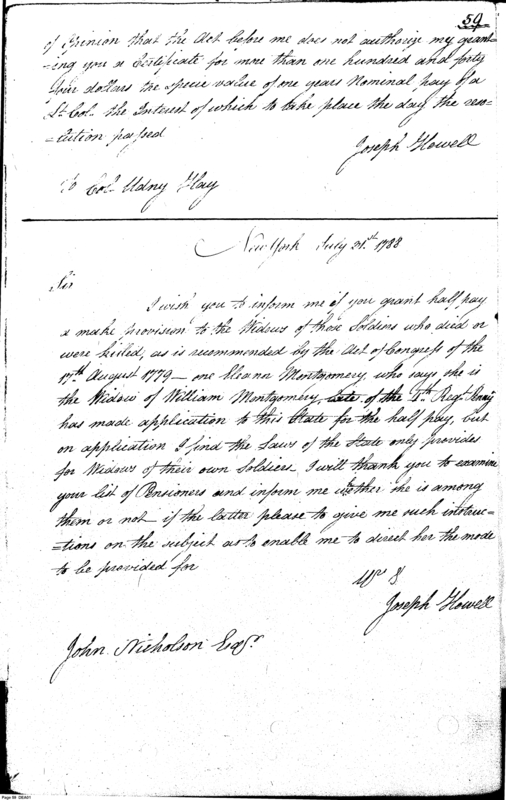 59
of Opinion that the Act before me does not authorize my grant-
=ing you a Certificate for more than one hundred and forty
four dollars the specie value of one years Nominal pay of a
Lt. Col. the Interest of which to take place the day the reso-
=lution passed
Joseph Howell
To Col. Udny Hay
New York July 21.st 1788
Sir
I wish you to inform me if you grant half pay
a make provision to the Widows of those Soldiers who died or
were killed, as is recommended by the Act of Congress of the
17th August 1779 — one Eleanor Montgomery who says she is
the Widow of William Montgomery late of the Regt. Penny
has made application to this State for the half pay, but
on application I find the Laws of the State only provides
for Widows of their own Soldiers. I will thank you to examine
your list of Pensioners and inform me whether she is among
them or not if the latter please to give me such instruc-
=tions on the subject as to enable me to direct her the mode
to be provided for
Joseph Howell
John Nicholson Esqr.
Page 59 DEA01